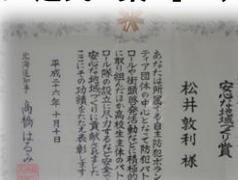 安心な地域づくり賞
松井敦利 様
あなたは所属する自主防犯ボラン
ティア団体の中心となって防犯パト
ロールや街頭啓発活動などに積極的
に取り組んだほか高校生主体のパト
ロール隊の設立に尽力するなど安全で
安心な地域づくりに貢献されました
ここにその功績をたたえ表彰します
平成二十六年十月十日
北海道知事 高橋はるみ